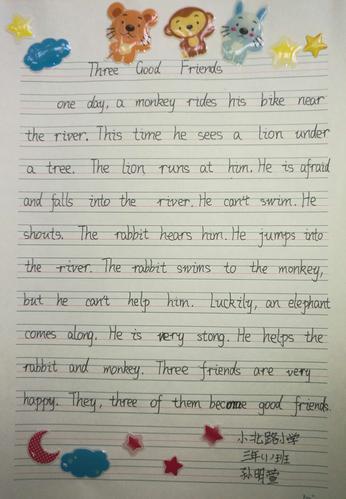 Three Good Friends
one day, a monkey rides his bike near
the river. This time he sees a lion under
a tree. The lion runs at him. He is afraid
and falls into the river. He can't swim. He
shouts. The rabbit hears him. He jumps into
the river. The rabbit swims to the monkey,
but he can't help him. Luckily, an elephant
comes along. He is very stong. He helps the
rabbit and monkey. Three friends are very
happy. They, three of them become good friends.
小北路小学
三年1班
孙明萱